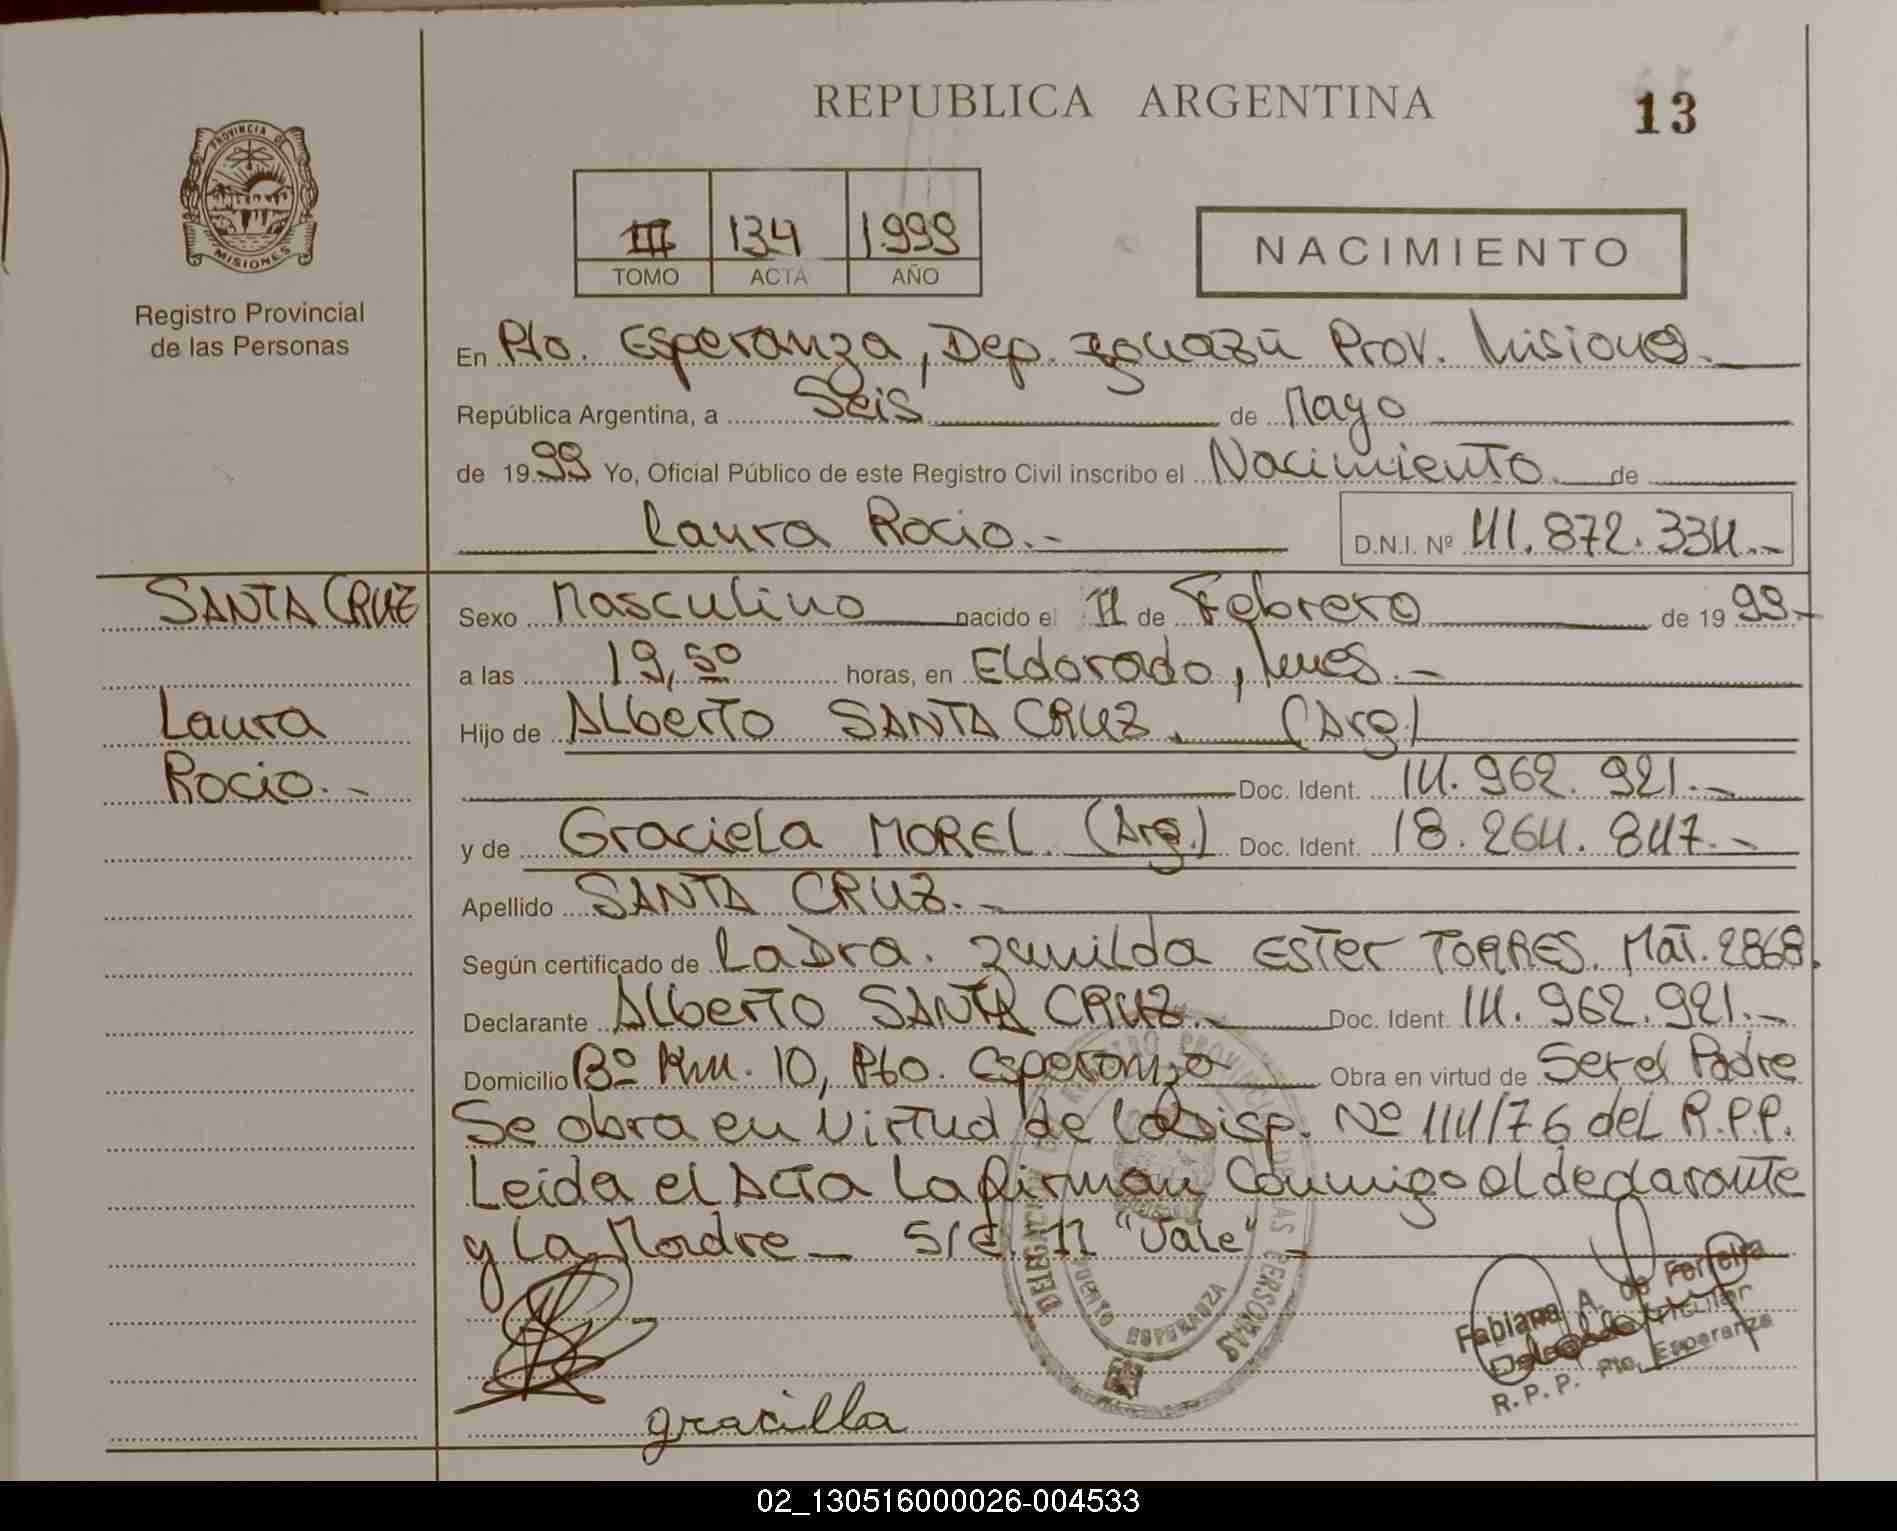 REPUBLICA ARGENTINA
13
PROVINCIA DE
MISIONES
Registro Provincial
de las Personas
III 134 1999
TOMO ACTA AÑO
NACIMIENTO
En Pto. Esperanza, Dep. Iguazú Prov. Misiones.
República Argentina, a Seis de Mayo
de 1999 Yo, Oficial Público de este Registro Civil inscribo el Nacimiento de
Laura Rocio.-
D.N.I. Nº 41.872.334.-
SANTA CRUZ
Sexo Masculino nacido el 11 de Febrero de 1999.-
a las 19,50 horas, en Eldorado, Mnes.-
Laura
Hijo de Alberto SANTA CRUZ. (Arg.)
Rocio.-
Doc. Ident. 14.962.921.-
y de Graciela MOREL. (Arg.) Doc. Ident. 18.264.847.-
Apellido SANTA CRUZ.-
Según certificado de La Dra. Zunilda Ester TORRES. Mat. 2868.
Declarante Alberto SANTA CRUZ.- Doc. Ident. 14.962.921.-
Domicilio Bº Km. 10, Pto. Esperanza Obra en virtud de Ser el Padre
Se obra en Virtud de la Disp. Nº 114/76 del R.P.P.
Leida el Acta La firman Conmigo el declarante
y La Madre - S/E. 11 "Vale" -
DELEGACION REGISTRO PROVINCIAL DE LAS PERSONAS
PUERTO ESPERANZA
Fabiana A. de Ferreira
Delegada Titular
R.P.P. Pto. Esperanza
gracilla
02_130516000026-004533